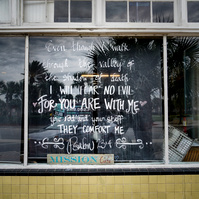 Even though I walk
through the valley of
the shadow of death
I WILL FEAR NO EVIL
FOR YOU ARE WITH ME
your rod and your staff
THEY COMFORT ME
MISSION